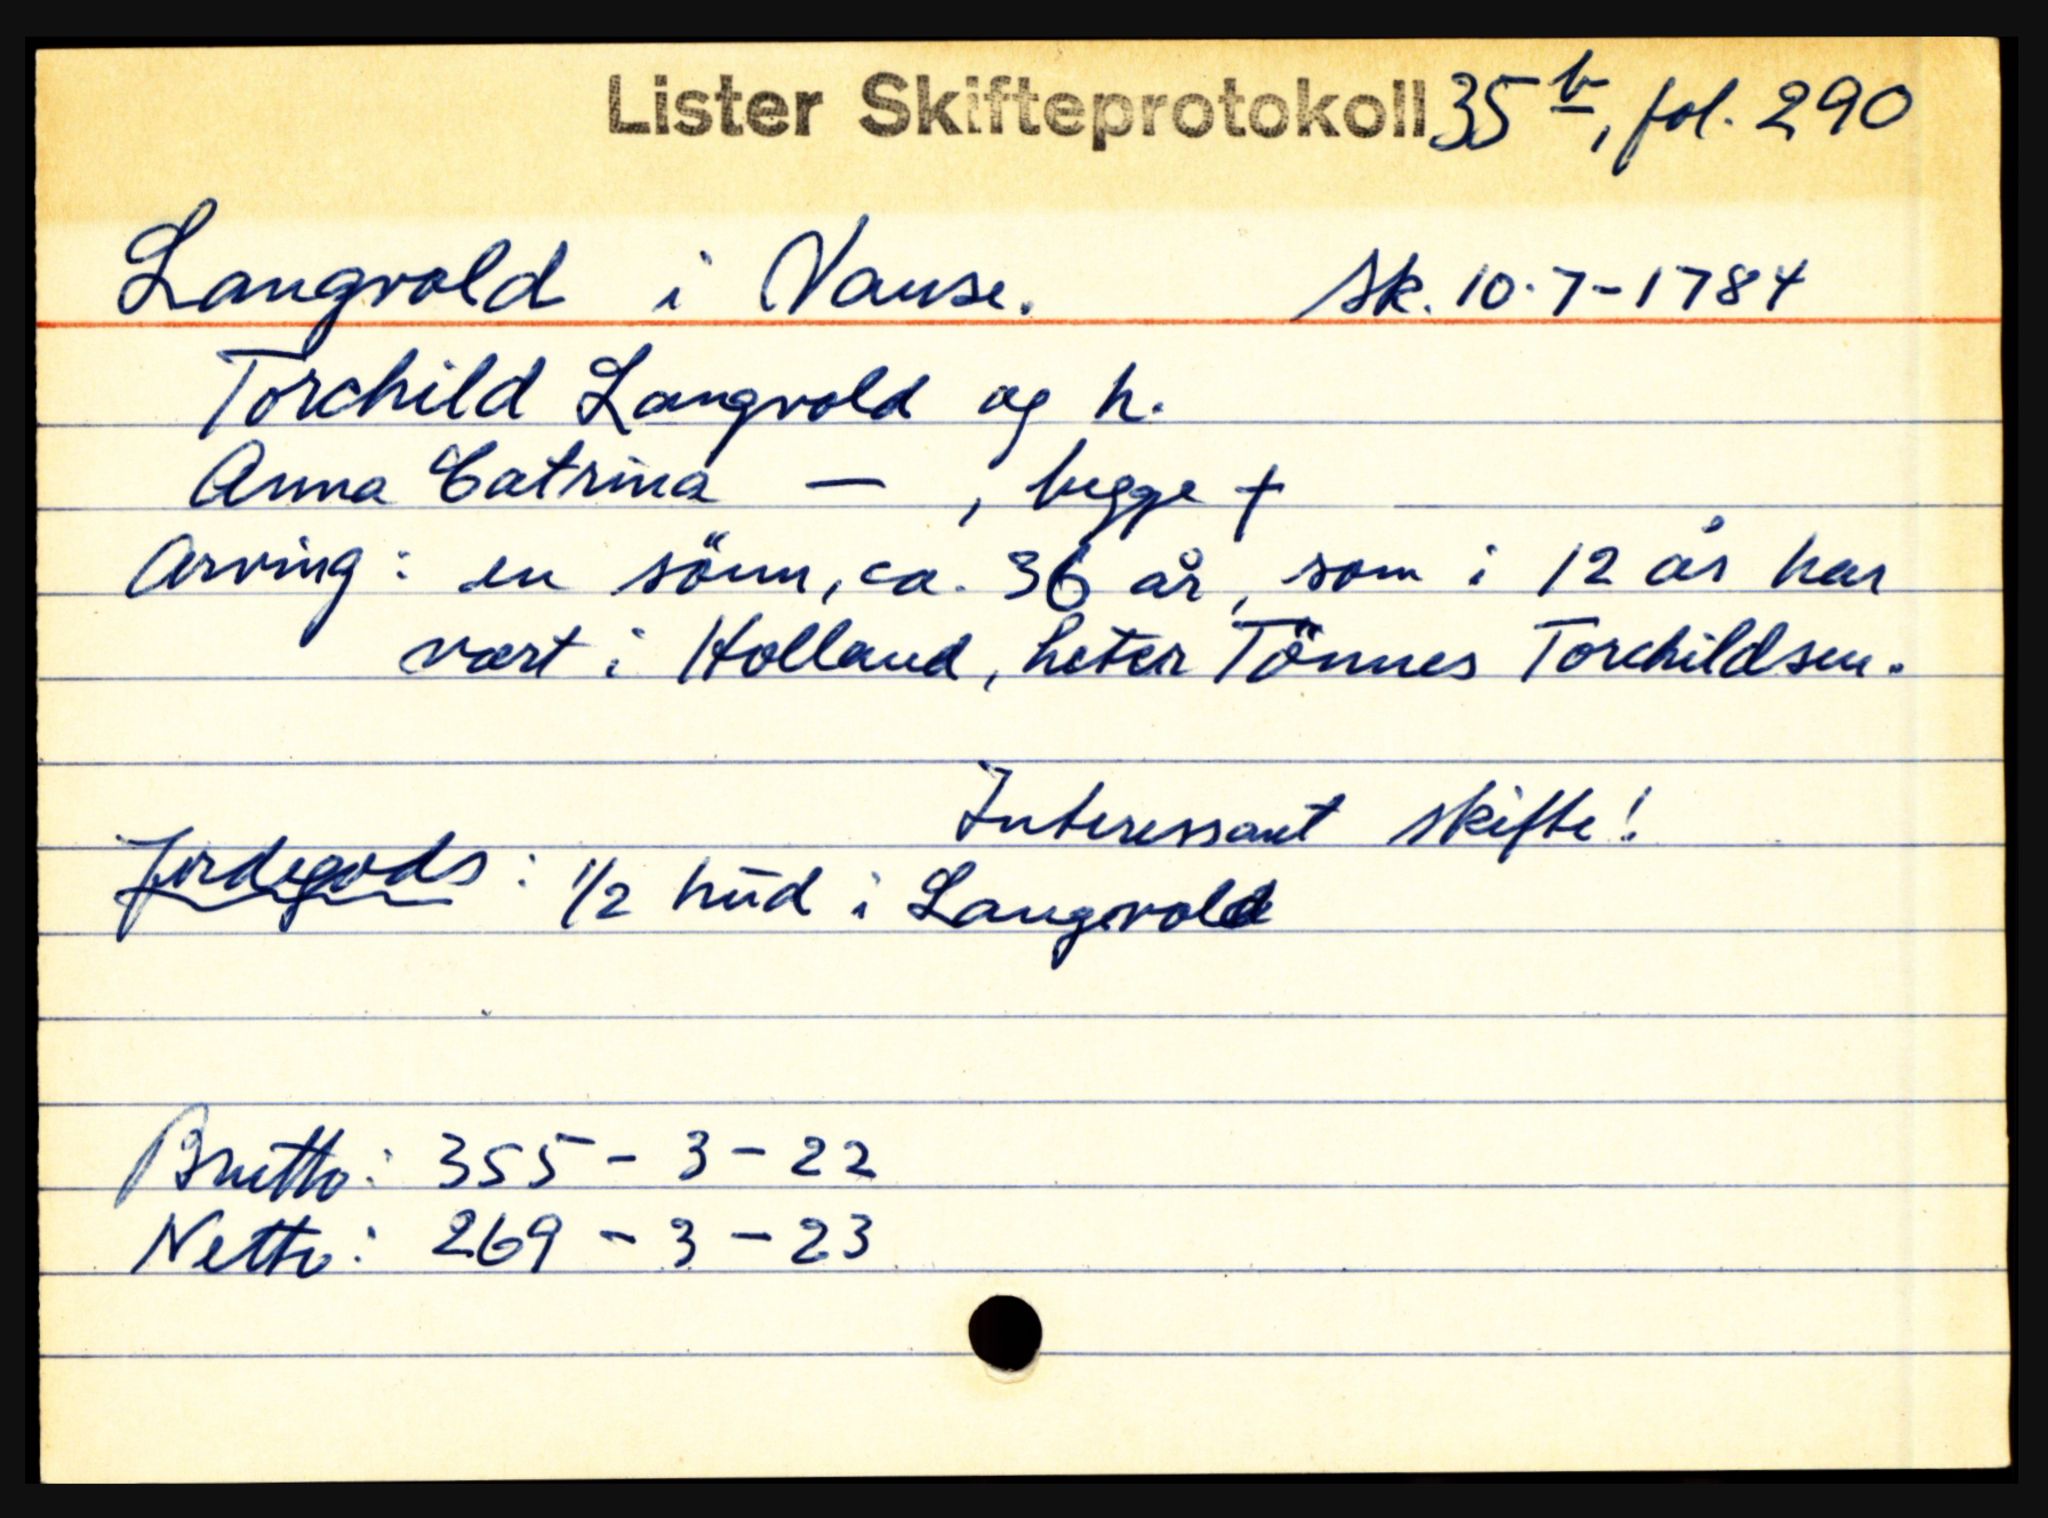 Lister Skifteprotokoll 35 b, fol. 290
Langvold i Vanse. Sk. 10.7-1784
Torchild Langvold og h.
Anna Catrina — , begge +
Arving: en sönn, ca. 36 år, som i 12 år har
vært i Holland, heter Tönnes Torchildsen.
Interessant skifte!
Jordegods: 1/2 hud i Langvold
Brutto: 355 - 3 - 22
Netto: 269 - 3 - 23